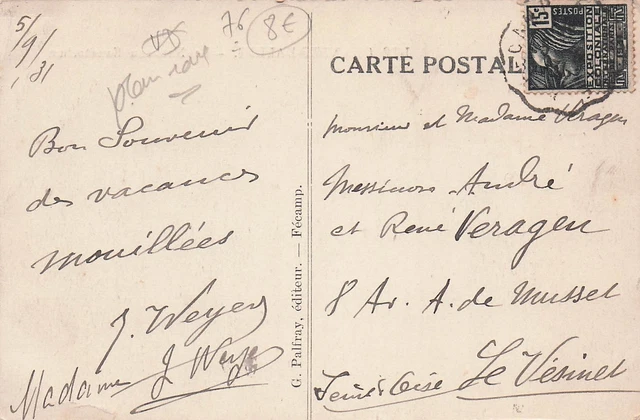 5/9/31
76
8€
Bon Souvenir
des vacances
mouillées
J. Weyer
Madame J Weyer
G. Palfray, éditeur. — Fécamp.
CARTE POSTAL
15c
POSTES
EXPOSITION
COLONIALE
Monsieur et Madame Veragen
Messieurs André
et René Veragen
8 Av. A. de Musset
Le Vésinet
Seine & Oise